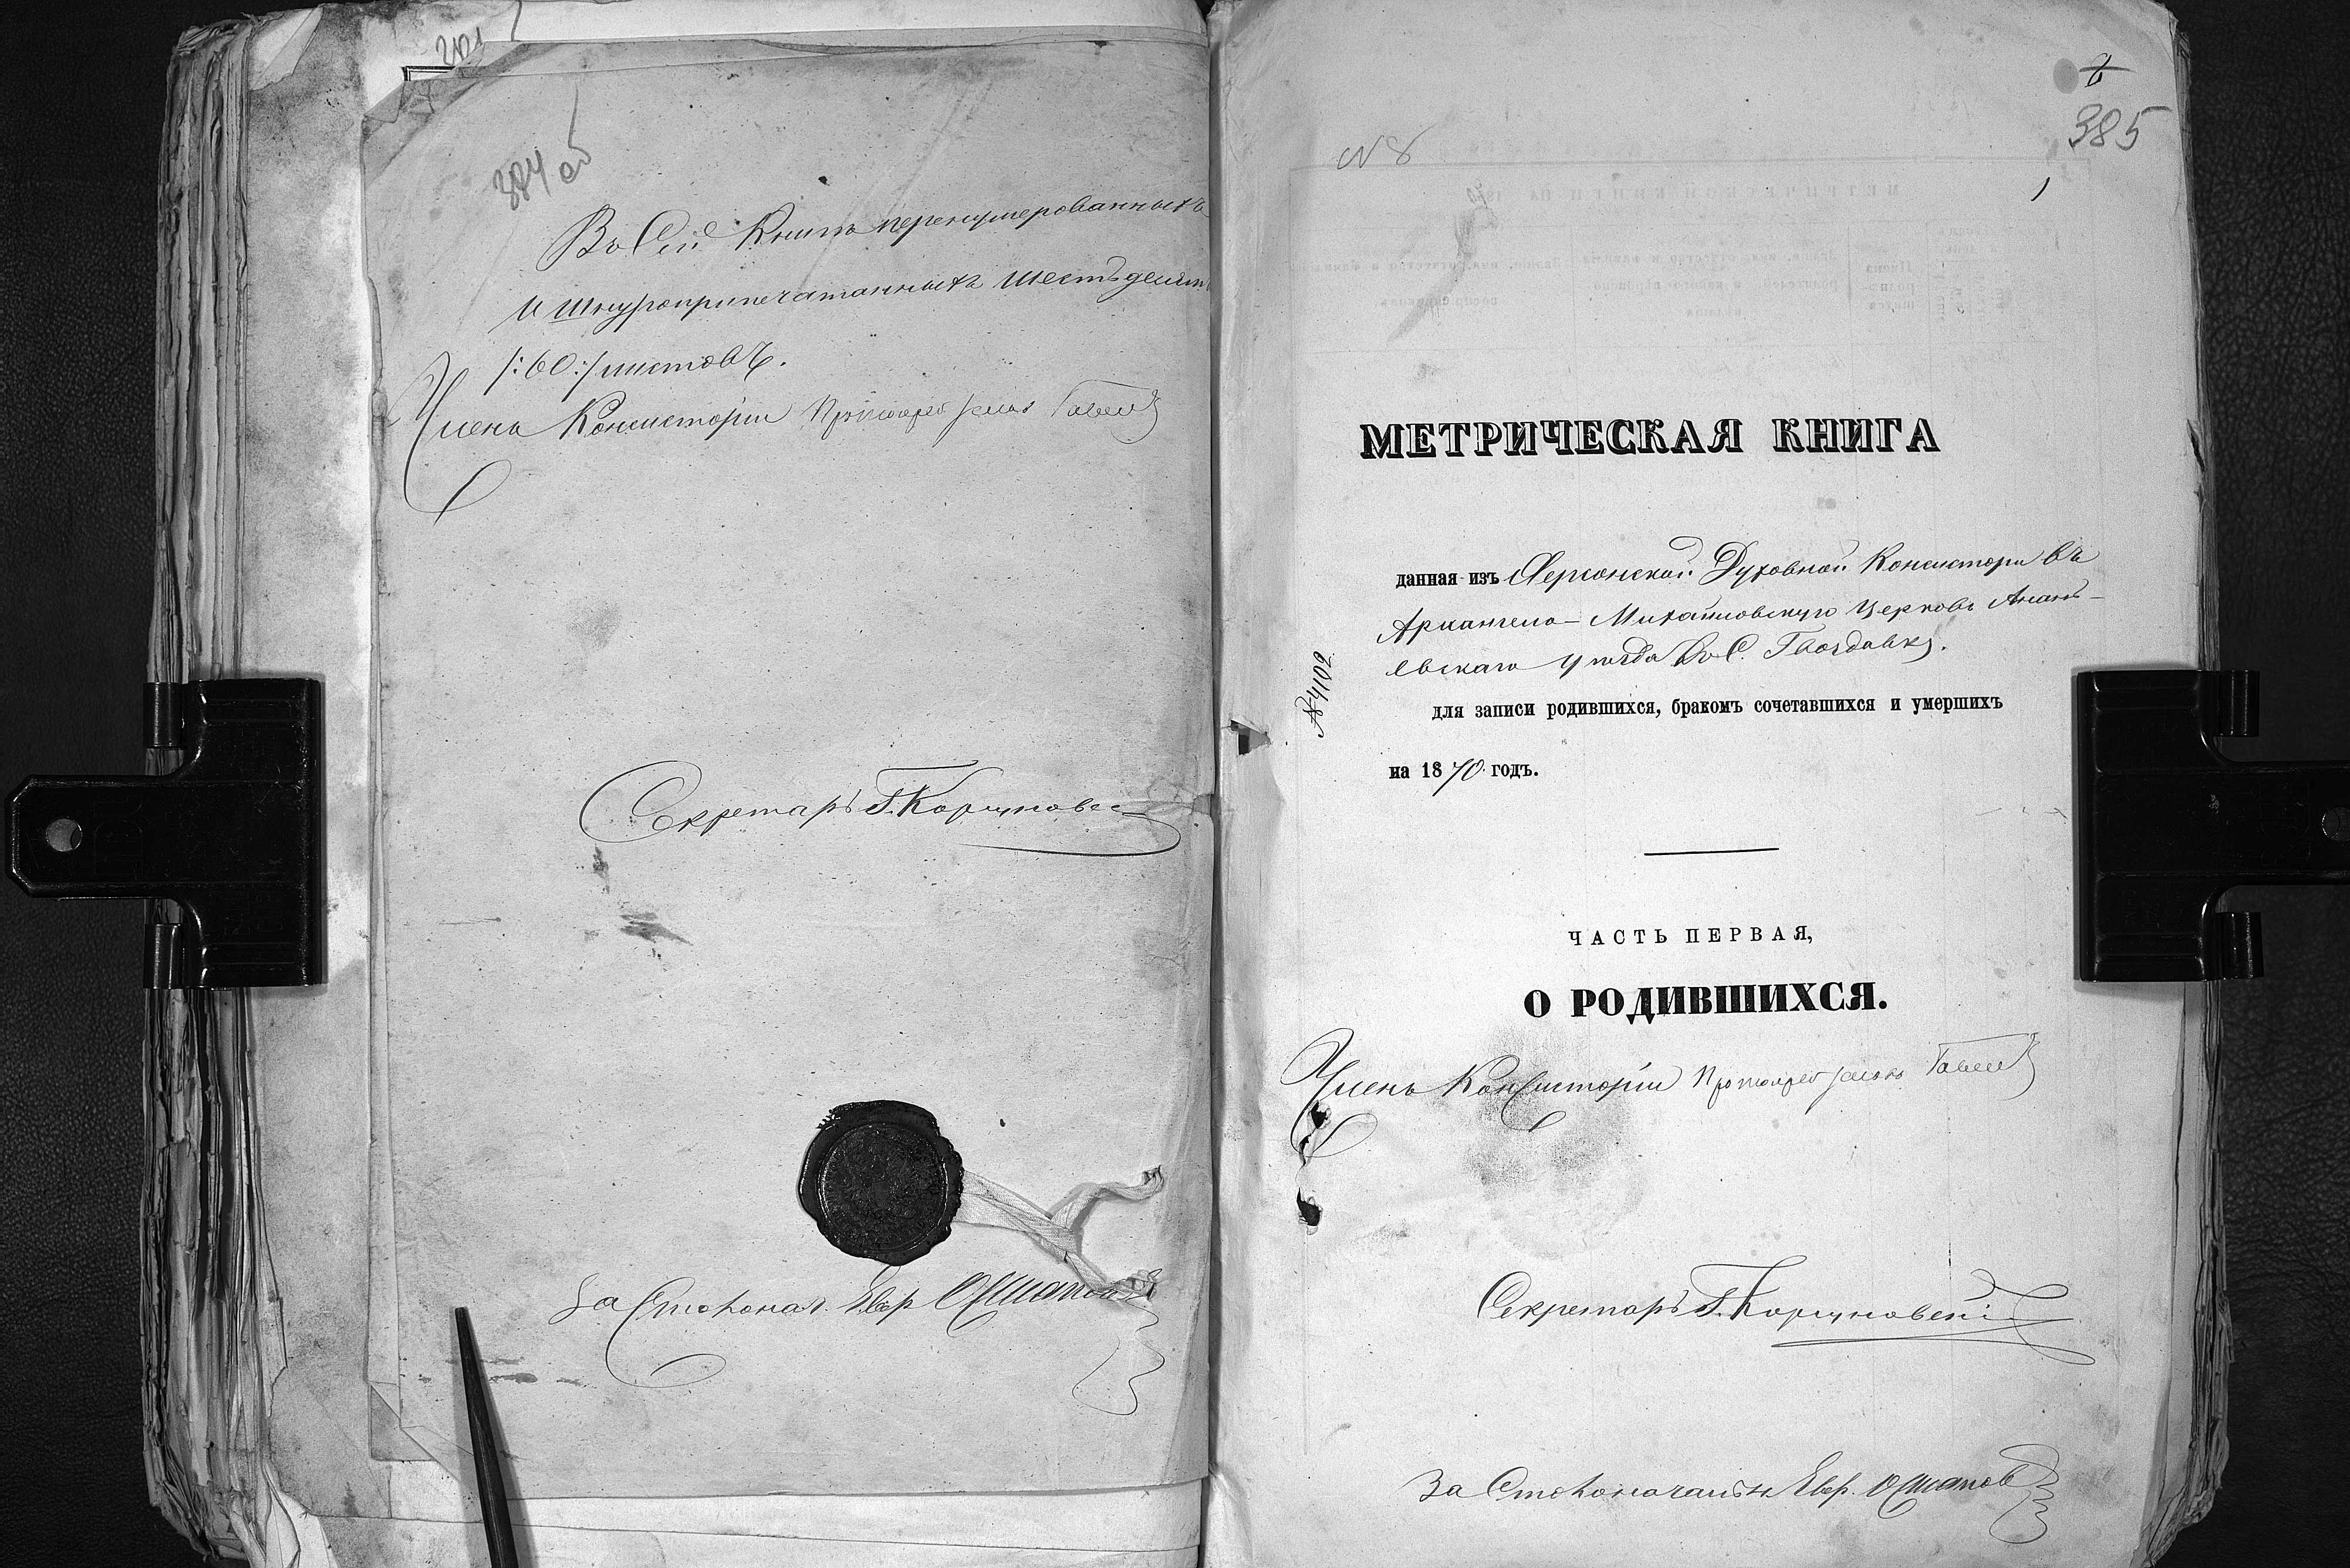 384 об
Въ Сей Книгѣ перенумерованныхъ
и шнуроприпечатанныхъ шестьдесятъ
/:60:/ листовъ.
Членъ Консисторіи Протоіерей
Секретарь Г. Корчиновскі
За Столонач. Евр
385
N 8
1
МЕТРИЧЕСКАЯ КНИГА
данная изъ Херсонской Духовной Консисторіи въ
Архангело-Михайловскую церковь Анань-
евскаго уѣзда въ С. Гвоздавку.
№ 4102
для записи родившихся, бракомъ сочетавшихся и умершихъ
на 1870 годъ.
ЧАСТЬ ПЕРВАЯ,
О РОДИВШИХСЯ.
Членъ Консисторіи Протоіерей
Секретарь Г. Корчиновскі
За Столоначальн Евр.